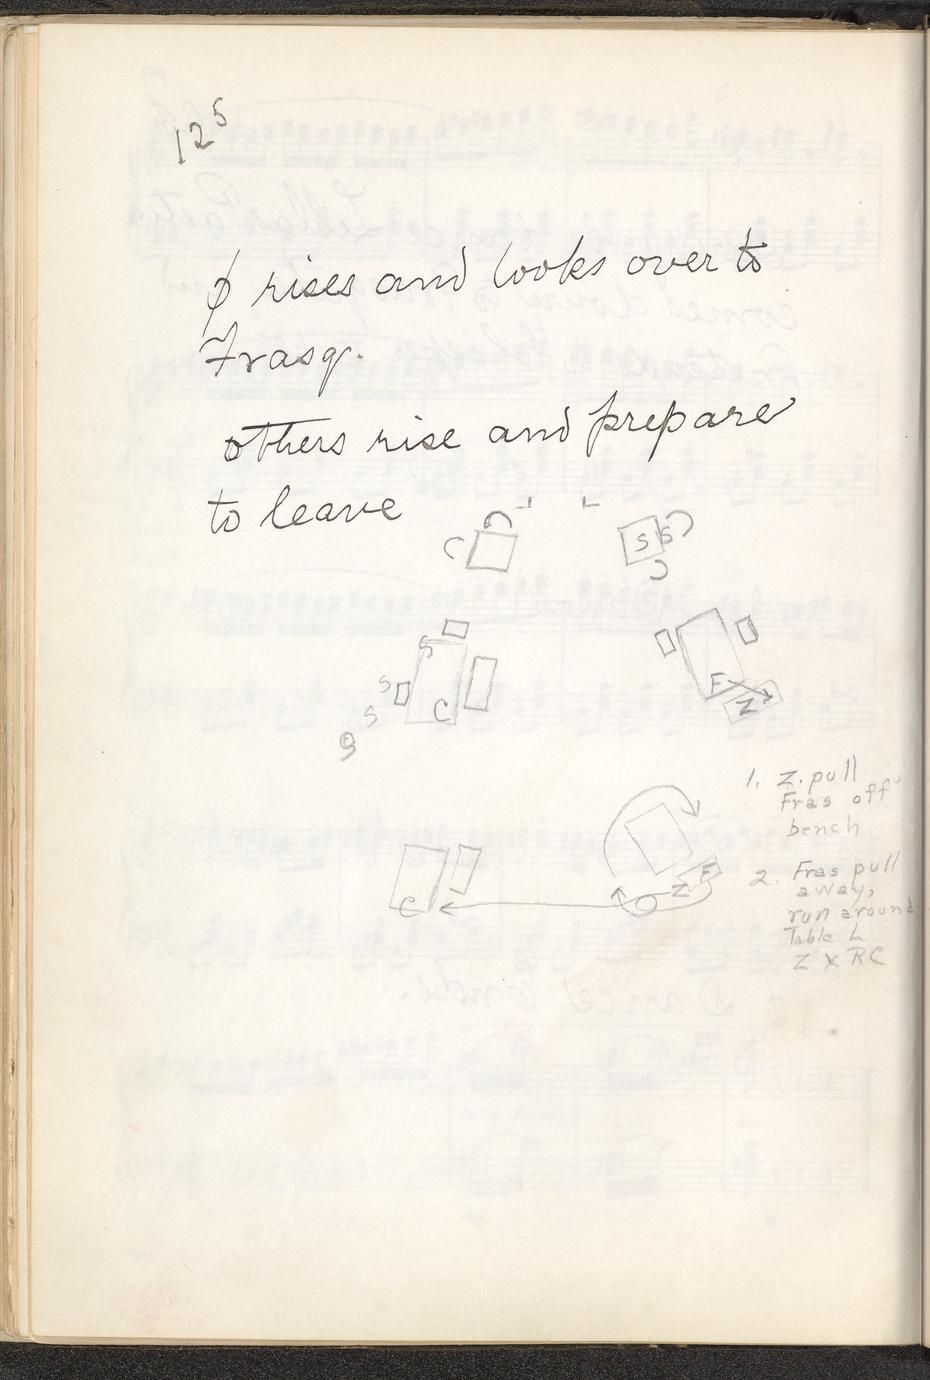 125
φ rises and looks over to
Frasq.
others rise and prepare
to leave
S S
S
S
C
S
F
Z
C
F
Z
1. Z. pull
Fras off
bench
2. Fras pull
away,
run around
Table L
Z X RC